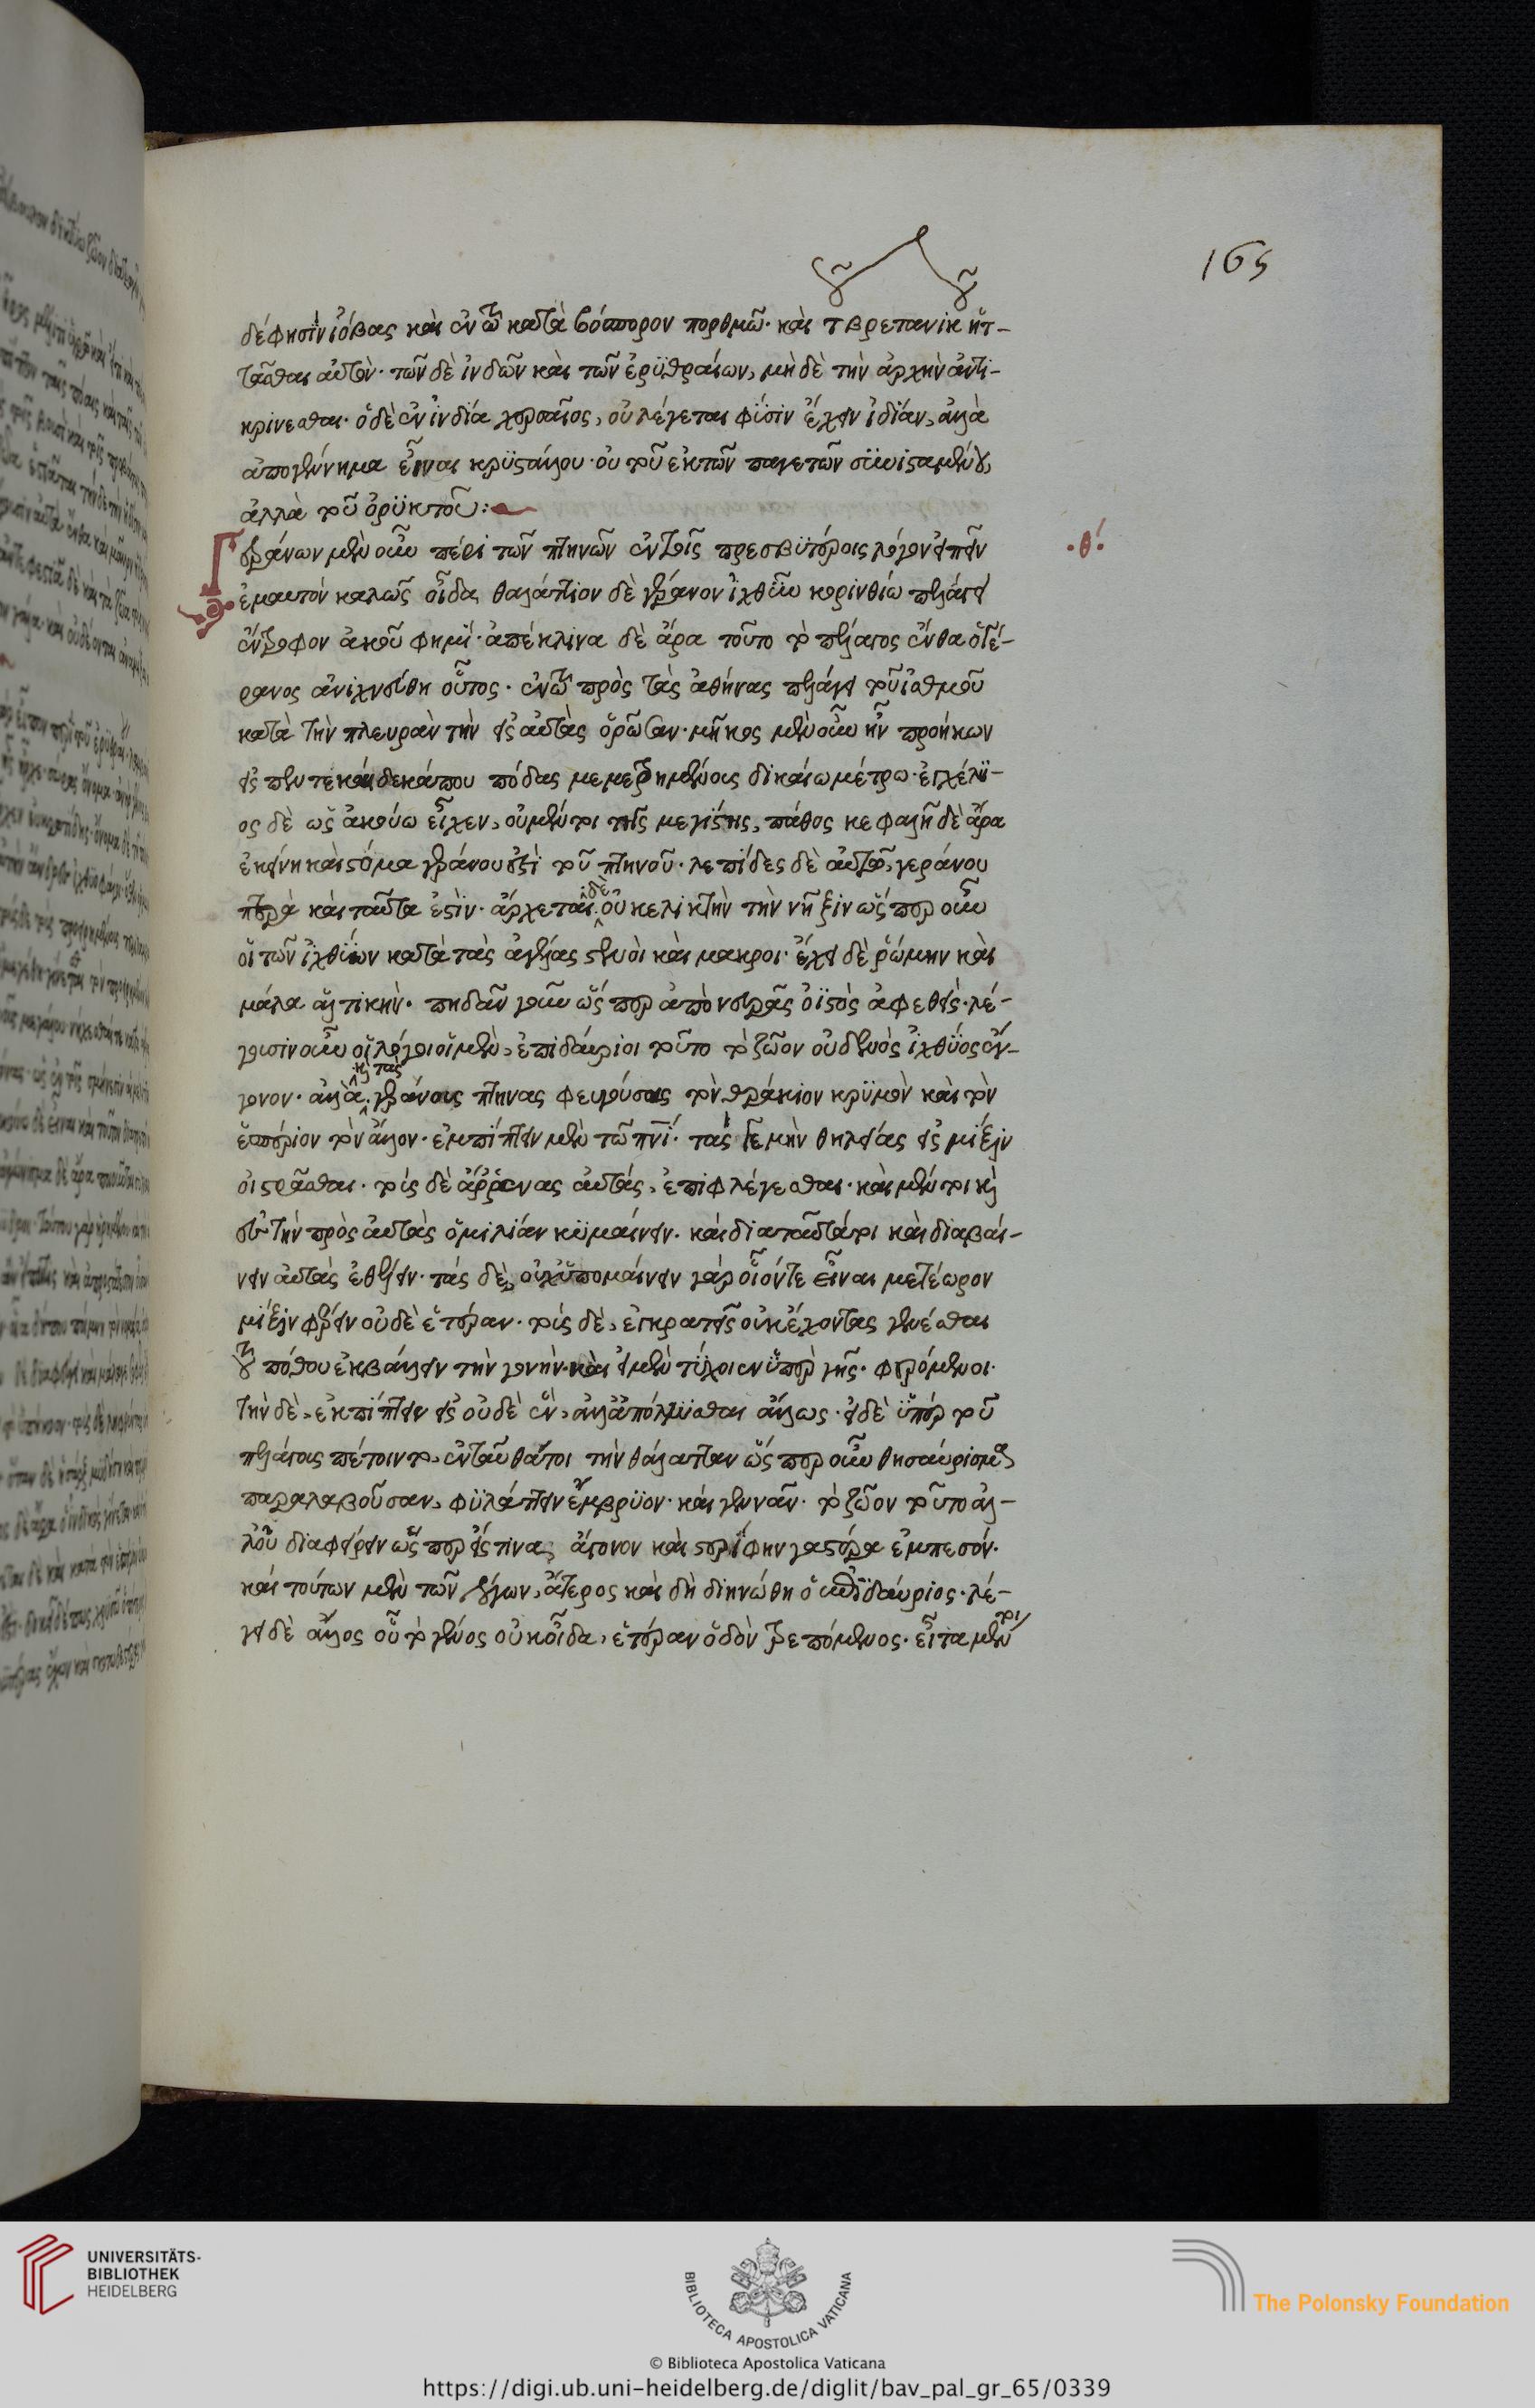 165
δέ φησιν ἰόβας καὶ ἐν τῶ κατὰ βόσπορον πορθμῶ· καὶ τ βρετανικ ἡτ-
τᾶσθαι αὐτόν· τῶν δὲ ἰνδῶν καὶ τῶν ἐρυθραίων, μὴ δὲ τὴν ἀρχὴν ἀντι-
κρίνεσθαι· ὁ δὲ ἐν ἰνδία χερσαῖος, οὐ λέγεται φύσιν ἔχειν ἰδίαν, ἀλλὰ
ἀπογέννημα εἶναι κρυστάλλου· οὐ τοῦ ἐκ τῶν παγετῶν συνισταμένου,
ἀλλὰ τοῦ ὀρυκτοῦ:
Γεράνων μὲν οὖν πέρι τῶν πτηνῶν ἐν τοῖς πρεσβυτέροις λόγον εἰπεῖν
·θ·
ἐμαυτὸν καλῶς οἶδα, θαλάττιον δὲ γέρανον ἰχθὺν κορινθίω πελάγει
ἔντροφον ἀκοῦ φημί· ἀπέκλινα δὲ ἄρα τοῦτο τὸ πέλαγος ἔνθα ὁ γέ-
ρανος ἀνιχνεύθη οὗτος· ἐν τῶ πρὸς τὰς ἀθήνας πελάγει τοῦ ἰσθμοῦ
κατὰ τὴν πλευρὰν τὴν εἰς αὐτὰς ὁρῶσαν· μῆκος μὲν οὖν ἦν προήκων
εἰς πεντεκαίδεκά που πόδας μεμετρημένους δικαίω μέτρω· ἐγχέλυ-
ος δὲ ὡς ἀκούω εἶχεν, οὐ μέντοι τῆς μεγίστης, πάθος κεφαλὴ δὲ ἄρα
ἐκείνη καὶ στόμα γεράνου ἐστὶ τοῦ πτηνοῦ· λεπίδες δὲ αὐτοῦ, γεράνου
πτερὰ καὶ ταῦτα ἐστίν· ἄρχεται δὲ οὐκ ἑλικτὴν τὴν νῆξιν ὥσπερ οὖν
οἱ τῶν ἰχθύων κατὰ τὰς ἀγέλας στενοὶ καὶ μακροι· ἔχει δὲ ῥώμην καὶ
μάλα ἁλτικὴν· πηδᾶν γοῦν ὥσπερ ἀπὸ νευρᾶς ὀϊστὸς ἀφεθεὶς· λέ-
γουσιν οὖν οἱ λόγοι οἱ μὲν, ἐπιδαύριοι τοῦτο τὸ ζῶον οὐδενὸς ἰχθύος ἔκ-
γονον· ἀλλὰ καὶ τὰς γεράνους πτηνας φευγούσας τὸν θράκιον κρυμὸν καὶ τὸν
ἑσπέριον τὸν ἄλλον· ἐμπίπτειν μὲν τῶ πνί· τάς γε μὴν θηλείας εἰς μίξιν
οἰστρᾶσθαι· τοὺς δὲ ἄρρενας αὐτάς, ἐπιφλέγεσθαι· καὶ μέντοι καὶ
εἰς τὴν πρὸς αὐτὰς ὁμιλίαν κυμαίνειν· καὶ διὰ ταῦτά τοι καὶ διαβαί-
νειν αὐτὰς ἐθέλειν· τὰς δὲ, οὐχ ὑπομένειν γὰρ οἷόν τε εἶναι μετέωρον
μίξιν φέρειν οὐδὲ ἑτέραν· τοὺς δὲ, ἐγκρατεῖς οὐκ ἔχοντας γενέσθαι
τοῦ πόθου ἐκβάλλειν τὴν γονήν· καὶ εἰ μὲν τύχοιεν ὑπὲρ γῆς· φερόμενοι·
τὴν δὲ, ἐκπίπτειν εἰς οὐδὲ ἕν, ἀλλ' ἀπόλλυσθαι ἄλλως· εἰ δὲ ὑπὲρ τοῦ
πελάγους πέτοιντο, ἐνταῦθά τοι τὴν θάλατταν ὥσπερ οὖν θησαύρισμα
παραλαβοῦσαν, φυλάττειν ἔμβρυον· καὶ γεννᾶν· τὸ ζῶον τοῦτο ἀλ-
λ' οὐ διαφθείρειν ὥσπερ εἴς τινας ἄγονον καὶ στερίφην γαστέρα ἐμπεσόν·
καὶ τούτων μὲν τῶν λόγων, ἅτερος καὶ δὴ διηνύθη ὁ ἐπιδαύριος· λέ-
γει δὲ ἄλλος οὗ τὸ γένος οὐκ οἶδα, ἑτέραν ὁδὸν τρεπόμενος· εἶτα μέντοι
UNIVERSITÄTS-
BIBLIOTHEK
HEIDELBERG
BIBLIOTECA APOSTOLICA VATICANA
© Biblioteca Apostolica Vaticana
The Polonsky Foundation
https://digi.ub.uni-heidelberg.de/diglit/bav_pal_gr_65/0339